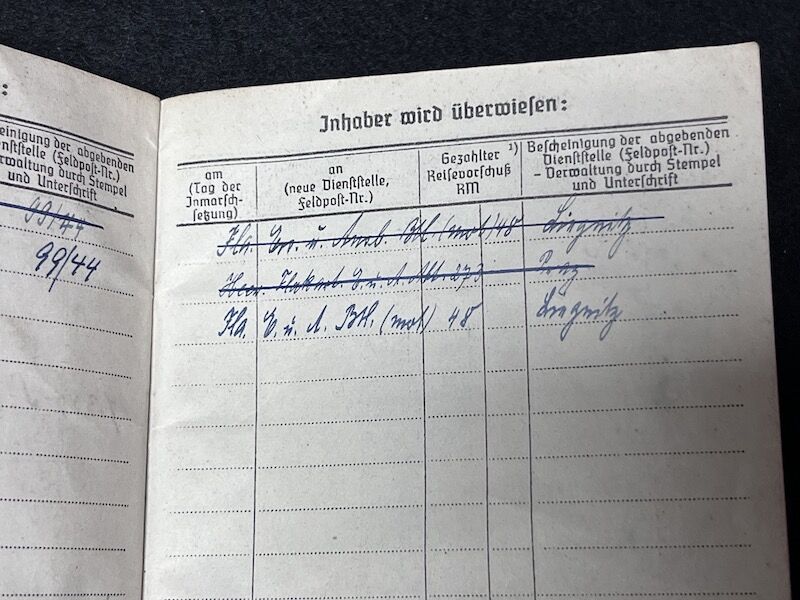 :
einigung der abgebenden
ststelle (Feldpost-Nr.)
rwaltung durch Stempel
und Unterschrift
99/44
99/44
Inhaber wird überwiesen:
am
(Tag der
Inmarsch-
setzung)
an
(neue Dienststelle,
Feldpost-Nr.)
Gezahlter 1)
Reisevorschuß
RM
Bescheinigung der abgebenden
Dienststelle (Feldpost-Nr.)
- Verwaltung durch Stempel
und Unterschrift
Fla. Ers. u. Ausb. Btl. (mot) 48 Liegnitz
Heer. Flakart. E. u. A. Abt. 273
Fla. E. u. A. Btl. (mot) 48 Liegnitz